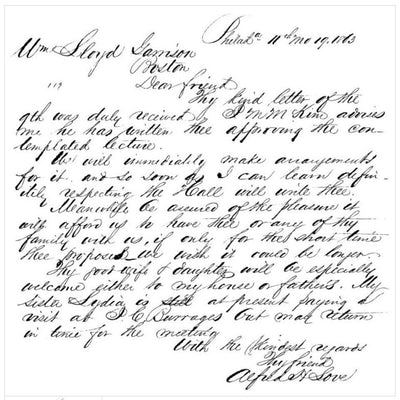 Philada 11th Mo 19, 1863
Wm Lloyd Garrison
Boston
Dear friend
Thy kind letter of the
9th was duly received & J M M Kim advises
me he has written thee approving the con-
templated lecture.
We will immediately make arrangements
for it. and so soon as I can learn defin-
itely respecting the Hall will write thee.
Meanwhile be assured of the pleasure it
will afford us to have thee or any of thy
family with us, if only for the short time
thee proposed we wish it could be longer
Thy good wife & daughter will be especially
welcome either to my house or father's. My
Sister Lydia is still at present paying a
visit at J. C. Burrages but may return
in time for the meeting
With the kindest regards
Thy friend
Alfred H Love